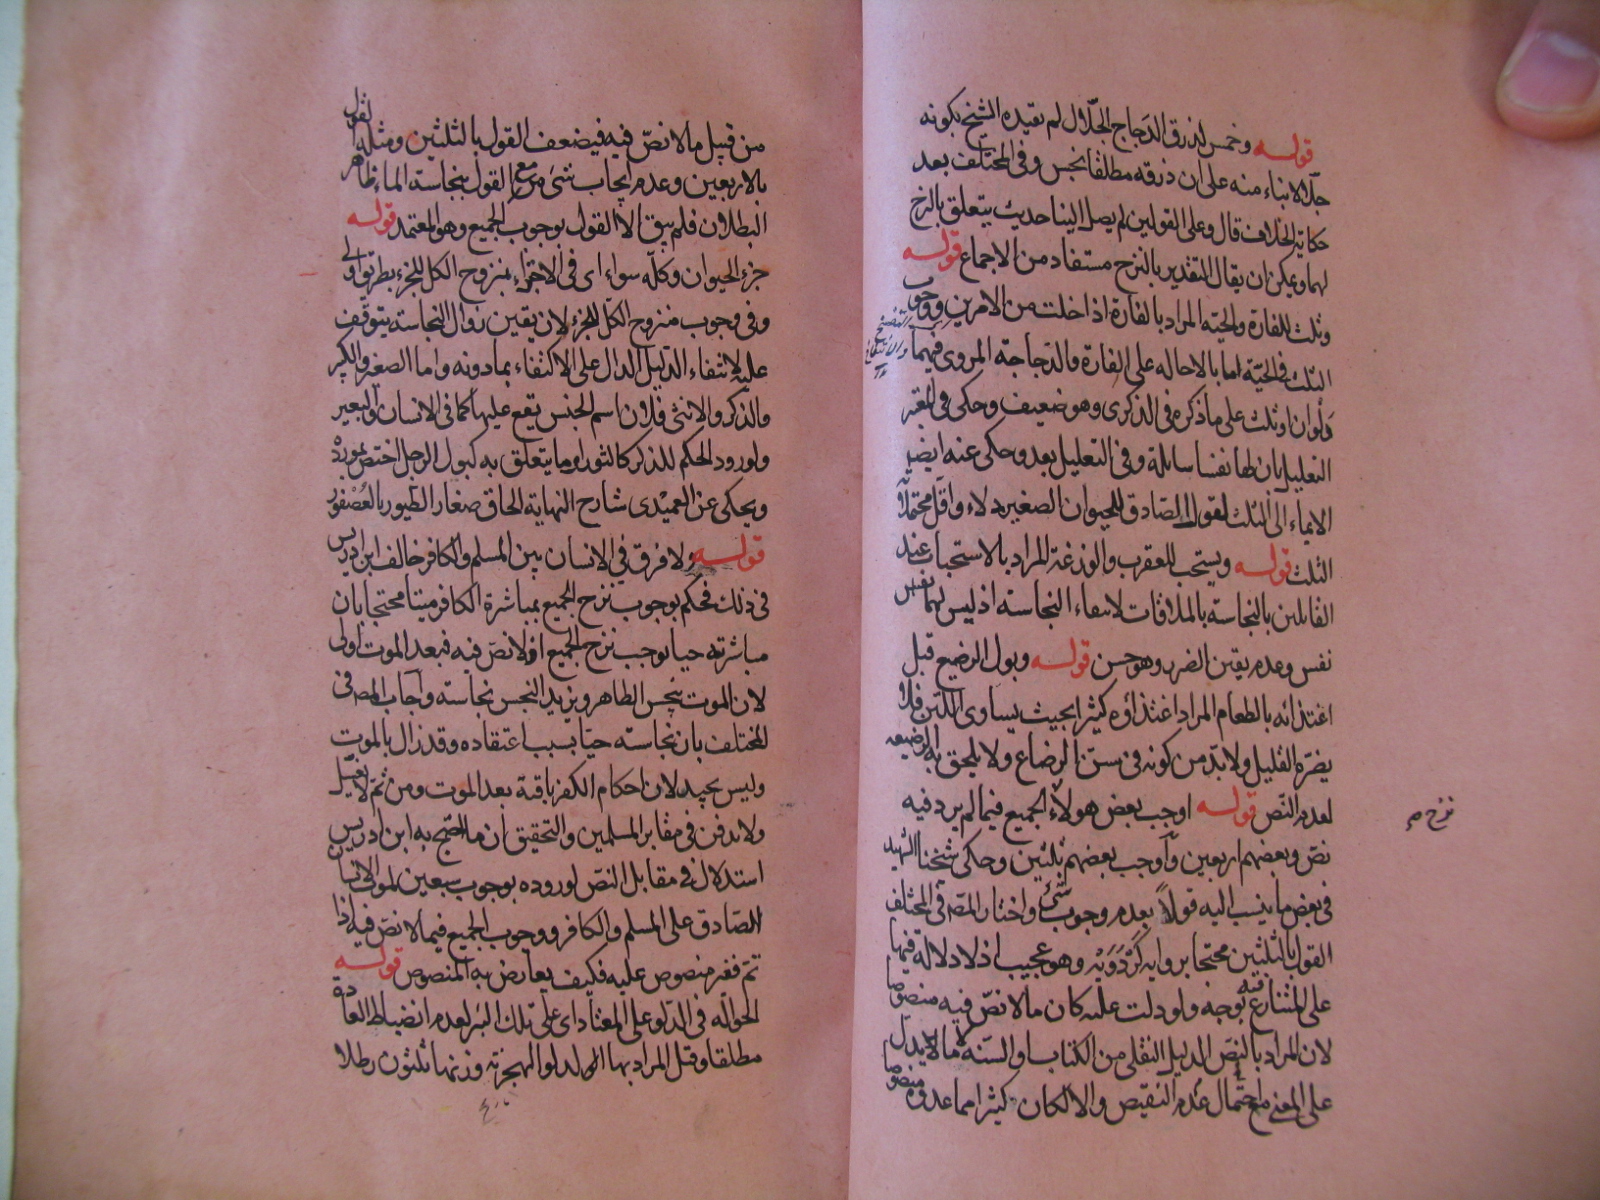 قوله وخمس لذرق الدجاج الجلال لم يقيده الشيخ بكونه
جلالا بناء منه على ان ذرقه مطلقا نجس وفى المختلف بعد
حكاية الخلاف قال وعلى القولين لم يصل الينا حديث يتعلق بالنزح
لهما ويمكن ان يقال التقدير بالنزح مستفاد من الاجماع قوله
وثلث للفارة والحية المراد بالفارة اذا خلت من الامرين ووجوب
الثلث في الحية اما بالاحالة على الفارة والدجاجة المروى فيهما
دلوان او ثلث على ما ذكره فى الذكرى وهو ضعيف وحكى فى المعتبر
التعليل بان لها نفسا سائلة وفى التعليل بعد وحكى عنه ايضا
الايماء الى الثلث لقول الصادق للحيوان الصغير دلاء واقل محتملاته
الثلث قوله ويستحب للعقرب والوزغة المراد بالاستحباب عند
القائلين بالنجاسة بالملاقات لانتفاء النجاسة اذ ليس لهما نفس
نفس وعدم يقين الضرر وهو حسن قوله وبول الرضيع قبل
اغتذائه بالطعام المراد اغتذاؤه كثيرا بحيث يساوى اللبن فلا
يضره القليل ولا بد من كونه فى سن الرضاع ولا يلحق به الرضيعة
لعدم النص قوله اوجب بعض هولاء الجميع فيما لم يرد فيه
نزح م
نص وبعضهم اربعين وأوجب بعضهم ثلثين وحكى شيخنا الشهيد
فى بعض ما ينسب اليه قولاً بعدم وجوب شئ واختار المص فى المختلف
القول بالثلثين محتجا برواية كردويه وهو عجيب اذ لا دلالة فيها
على المتنازع فيه بوجه ولو دلت عليه كان ما لا نص فيه منصوصا
لان المراد بالنص الدليل النقلى من الكتاب والسنة لا ما لا يدل
على المعنى مع احتمال عدم النقيض والا لكان كثيرا مما عدوه منصوصا
من قبيل ما لا نص فيه فيضعف القول بالثلثين ومثله القول
بالاربعين وعدم ايجاب شئ مع القول بنجاسة الماء ظاهر
البطلان فلم يبق الا القول بوجوب الجميع وهو المعتمد قوله
جزء الحيوان وكله سواء اى فى الاجزاء بمنزوح الكل للجزء بطريق اولى
وفى وجوب منزوح الكل للجزء لان يقين زوال النجاسة يتوقف
عليه لانتفاء الدليل الدال على الاكتفاء بما دونه واما الصغر والكبر
والذكر والانثى فلان اسم الجنس يقع عليها كما فى الانسان والبعير
ولو ورد الحكم للذكر كالثور او ما يتعلق به كبول الرجل اختص بمورده
ويحكى عن العميدى شارح النهاية الحاق صغار الطيور بالعصفور
قوله ولا فرق فى الانسان بين المسلم والكافر خالف ابن ادريس
فى ذلك فحكم بوجوب نزح الجميع بمباشرة الكافر ميتا محتجا بان
مباشرته حيا يوجب نزح الجميع اذ لا نص فيه فبعد الموت اولى
لان الموت ينجس الطاهر ويزيد النجس نجاسة وأجاب المص فى
المختلف بان نجاسته حيا بسبب اعتقاده وقد زال بالموت
وليس بجيد لان احكام الكفر باقية بعد الموت ومن ثم لا يغسل
ولا يدفن فى مقابر المسلمين والتحقيق ان ما احتج به ابن ادريس
استدلال فى مقابل النص لوروده بوجوب سبعين لموت الانسان
الصادق على المسلم والكافر ووجوب الجميع فيما لا نص فيه اذا
تم فغير منصوص عليه فكيف يعارض به المنصوص قوله
الحوالة فى الدلو على المعتاد اى على تلك البئر لعدم انضباط العادة
مطلقا وقيل المراد بها الدلو الهجرية وزنها ثلثون رطلا